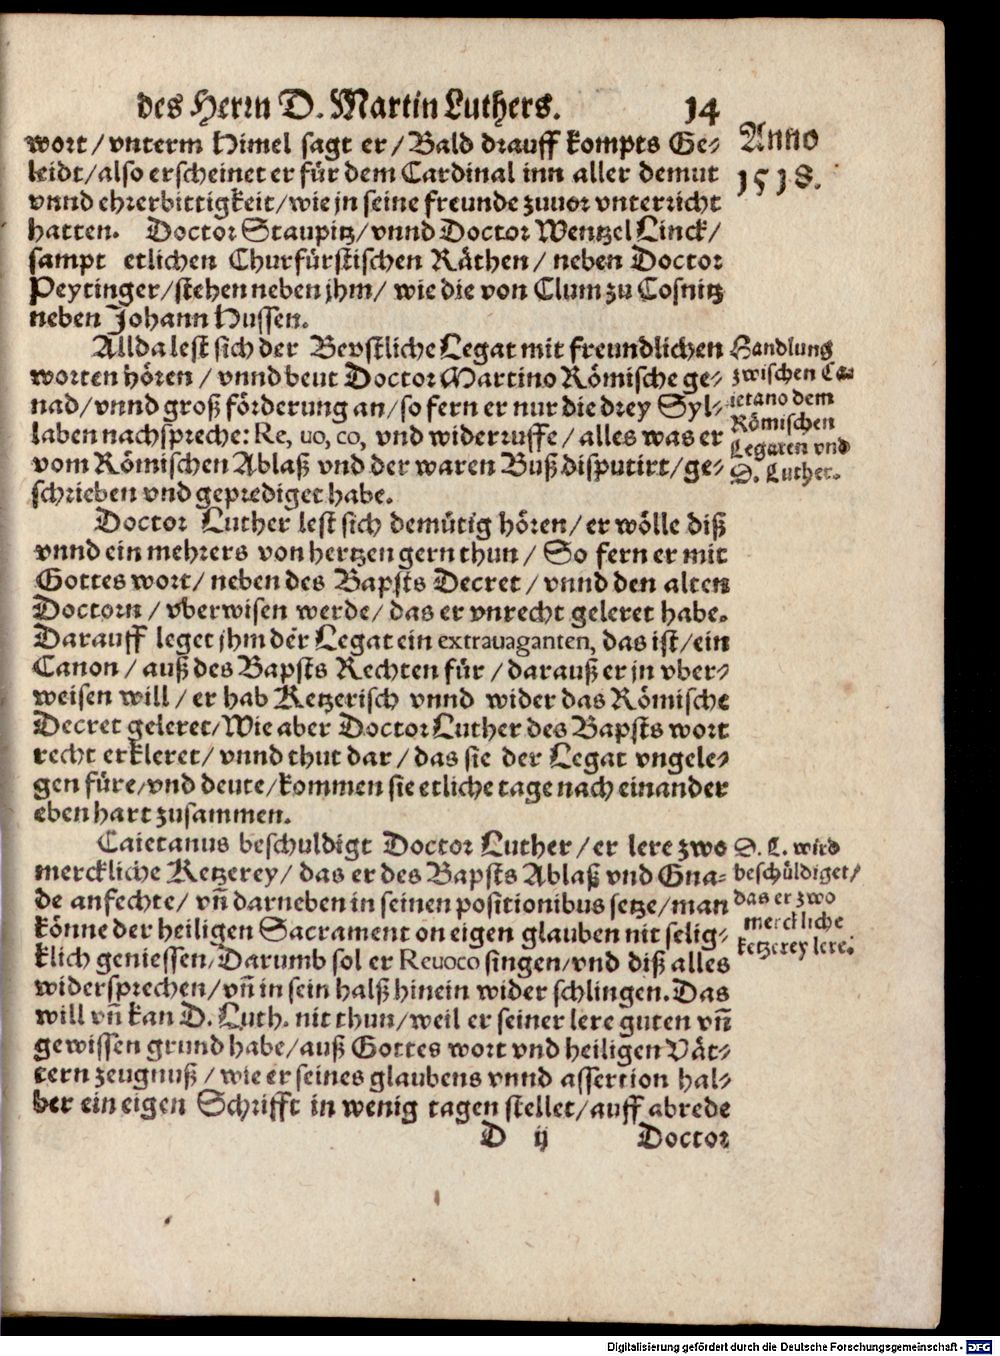 des Herrn D. Martin Luthers. 14
Anno
1518.
wort / vnterm Himel sagt er / Bald drauff kompts Ge-
leidt / also erscheinet er für dem Cardinal inn aller demut
vnnd ehrerbittigkeit / wie jn seine freunde zuuor vnterricht
hatten. Doctor Staupitz / vnnd Doctor Wentzel Linck /
sampt etlichen Churfürstischen Räthen / neben Doctor
Peytinger / stehen neben jhm / wie die von Clum zu Costnitz
neben Johann Hussen.
Allda lest sich der Bepstliche Legat mit freundlichen
worten hören / vnnd beut Doctor Martino Römische ge-
nad / vnnd groß förderung an / so fern er nur die drey Syl-
laben nachspreche: Re, uo, co, vnd widerruffe / alles was er
vom Römischen Ablaß vnd der waren Buß disputirt / ge-
schrieben vnd geprediget habe.
Handlung
zwischen Ca-
ietano dem
Römischen
Legaten vnd
D. Luther.
Doctor Luther lest sich demütig hören / er wölle diß
vnnd ein mehrers von hertzen gern thun / So fern er mit
Gottes wort / neben des Bapsts Decret / vnnd den alten
Doctorn / vberwisen werde / das er vnrecht geleret habe.
Darauff leget jhm der Legat ein extrauaganten, das ist / ein
Canon / auß des Bapsts Rechten für / darauß er jn vber-
weisen will / er hab Ketzerisch vnnd wider das Römische
Decret geleret / Wie aber Doctor Luther des Bapsts wort
recht erkleret / vnnd thut dar / das sie der Legat vngele-
gen füre / vnd deute / kommen sie etliche tage nach einander
eben hart zusammen.
Caietanus beschuldigt Doctor Luther / er lere zwo
merckliche Ketzerey / das er des Bapsts Ablaß vnd Gna-
de anfechte / vñ darneben in seinen positionibus setze / man
könne der heiligen Sacrament on eigen glauben nit selig-
klich geniessen / Darumb sol er Reuoco singen / vnd diß alles
widersprechen / vñ in sein halß hinein wider schlingen. Das
will vñ kan D. Luth. nit thun / weil er seiner lere guten vñ
gewissen grund habe / auß Gottes wort vnd heiligen Vät-
tern zeugnuß / wie er seines glaubens vnnd assertion hal-
ber ein eigen Schrifft in wenig tagen stellet / auff abrede
D. L. wird
beschüldiget /
das er zwo
merckliche
ketzerey lere.
D ij Doctor
Digitalisierung gefördert durch die Deutsche Forschungsgemeinschaft - DFG